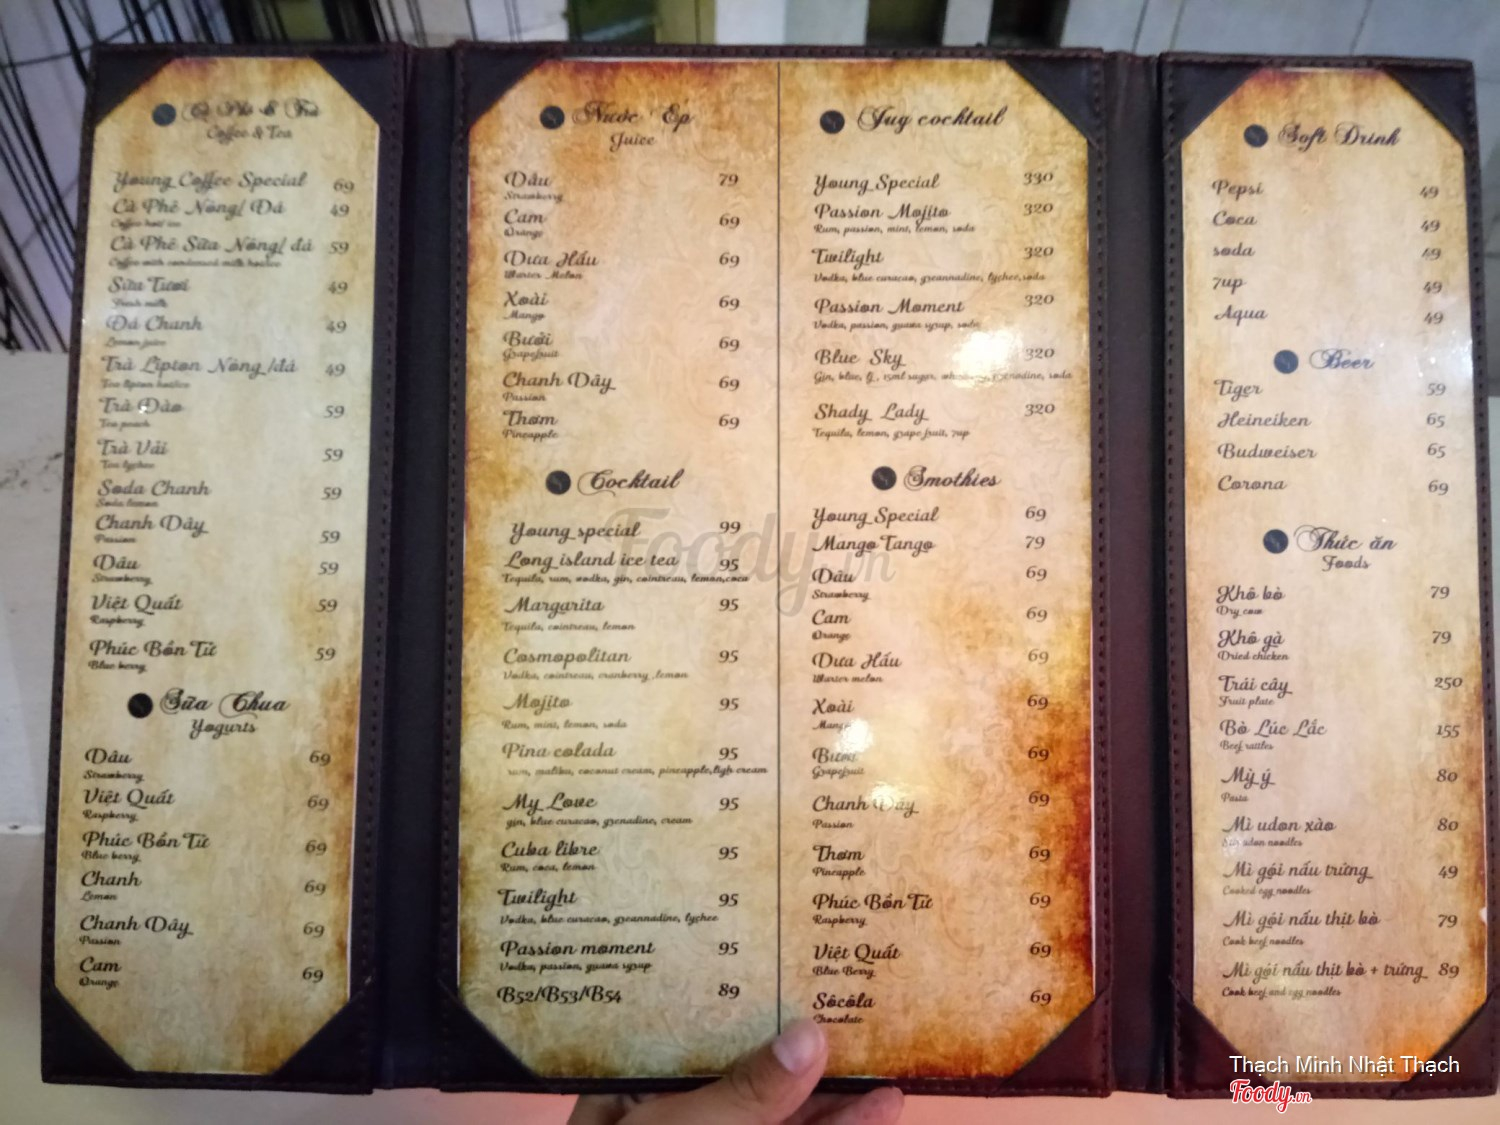 Cà Phê & Trà
Coffee & Tea
Young Coffee Special 69
Cà Phê Nóng/ Đá 49
Coffee hot/ ice
Cà Phê Sữa Nóng/ đá 59
Coffee with condensed milk hot/ice
Sữa Tươi 49
Fresh milk
Đá Chanh 49
Lemon juice
Trà Lipton Nóng /đá 49
Tea lipton hot/ice
Trà Đào 59
Tea peach
Trà Vải 59
Tea lychee
Soda Chanh 59
Soda lemon
Chanh Dây 59
Passion
Dâu 59
Strawberry
Việt Quất 59
Raspberry
Phúc Bồn Tử 59
Blue berry
Sữa Chua
Yogurts
Dâu 69
Strawberry
Việt Quất 69
Raspberry
Phúc Bồn Tử 69
Blue berry
Chanh 69
Lemon
Chanh Dây 69
Passion
Cam 69
Orange
Nước Ép
Juice
Dâu 79
Strawberry
Cam 69
Orange
Dưa Hấu 69
Warter Melon
Xoài 69
Mango
Bưởi 69
Grapefruit
Chanh Dây 69
Passion
Thơm 69
Pineapple
Cocktail
Young special 99
Long island ice tea 95
Tequila, rum, vodka, gin, cointreau, lemon,coca
Margarita 95
Tequila, cointreau, lemon
Cosmopolitan 95
Vodka, cointreau, cranberry ,lemon
Mojito 95
Rum, mint, lemon, soda
Pina colada 95
rum, malibu, coconut cream, pineapple,ligh cream
My Love 95
gin, blue curacao, grenadine, cream
Cuba libre 95
Rum, coca, lemon
Twilight 95
Vodka, blue curacao, greannadine, lychee
Passion moment 95
Vodka, passion, guava syrup
B52/B53/B54 89
Jug cocktail
Young Special 330
Passion Mojito 320
Rum, passion, mint, lemon, soda
Twilight 320
Vodka, blue curacao, greannadine, lychee,soda
Passion Moment 320
Vodka, passion, guava syrup, soda
Blue Sky 320
Gin, blue, 15ml sugar, grenadine, soda
Shady Lady 320
Tequila, lemon, grape fruit, 7up
Smothies
Young Special 69
Mango Tango 79
Dâu 69
Strawberry
Cam 69
Orange
Dưa Hấu 69
Warter melon
Xoài 69
Mango
Bưởi 69
Grapefruit
Chanh Dây 69
Passion
Thơm 69
Pineapple
Phúc Bồn Tử 69
Raspberry
Việt Quất 69
Blue Berry
Sôcôla 69
Chocolate
Soft Drink
Pepsi 49
Coca 49
soda 49
7up 49
Aqua 49
Beer
Tiger 59
Heineiken 65
Budweiser 65
Corona 69
Thức ăn
Foods
Khô bò 79
Dry cow
Khô gà 79
Dried chicken
Trái cây 250
Fruit plate
Bò Lúc Lắc 155
Beef rattles
Mỳ ý 80
Pasta
Mì udon xào 80
udon noodles
Mì gói nấu trứng 49
Cooked egg noodles
Mì gói nấu thịt bò 79
Cook beef noodles
Mì gói nấu thịt bò + trứng 89
Cook beef and egg noodles
Foody.vn
Thạch Minh Nhật Thạch
Foody.vn